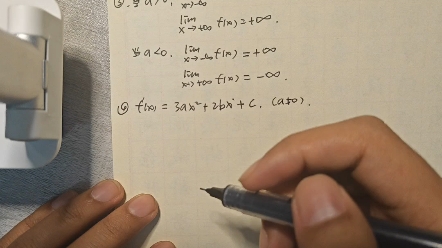 ⑤. 当a>0, lim x→-∞
lim x→+∞ f(x) = +∞.
当a<0. lim x→-∞ f(x) = +∞
lim x→+∞ f(x) = -∞.
⑥ f'(x) = 3ax² + 2bx + c. (a≠0).